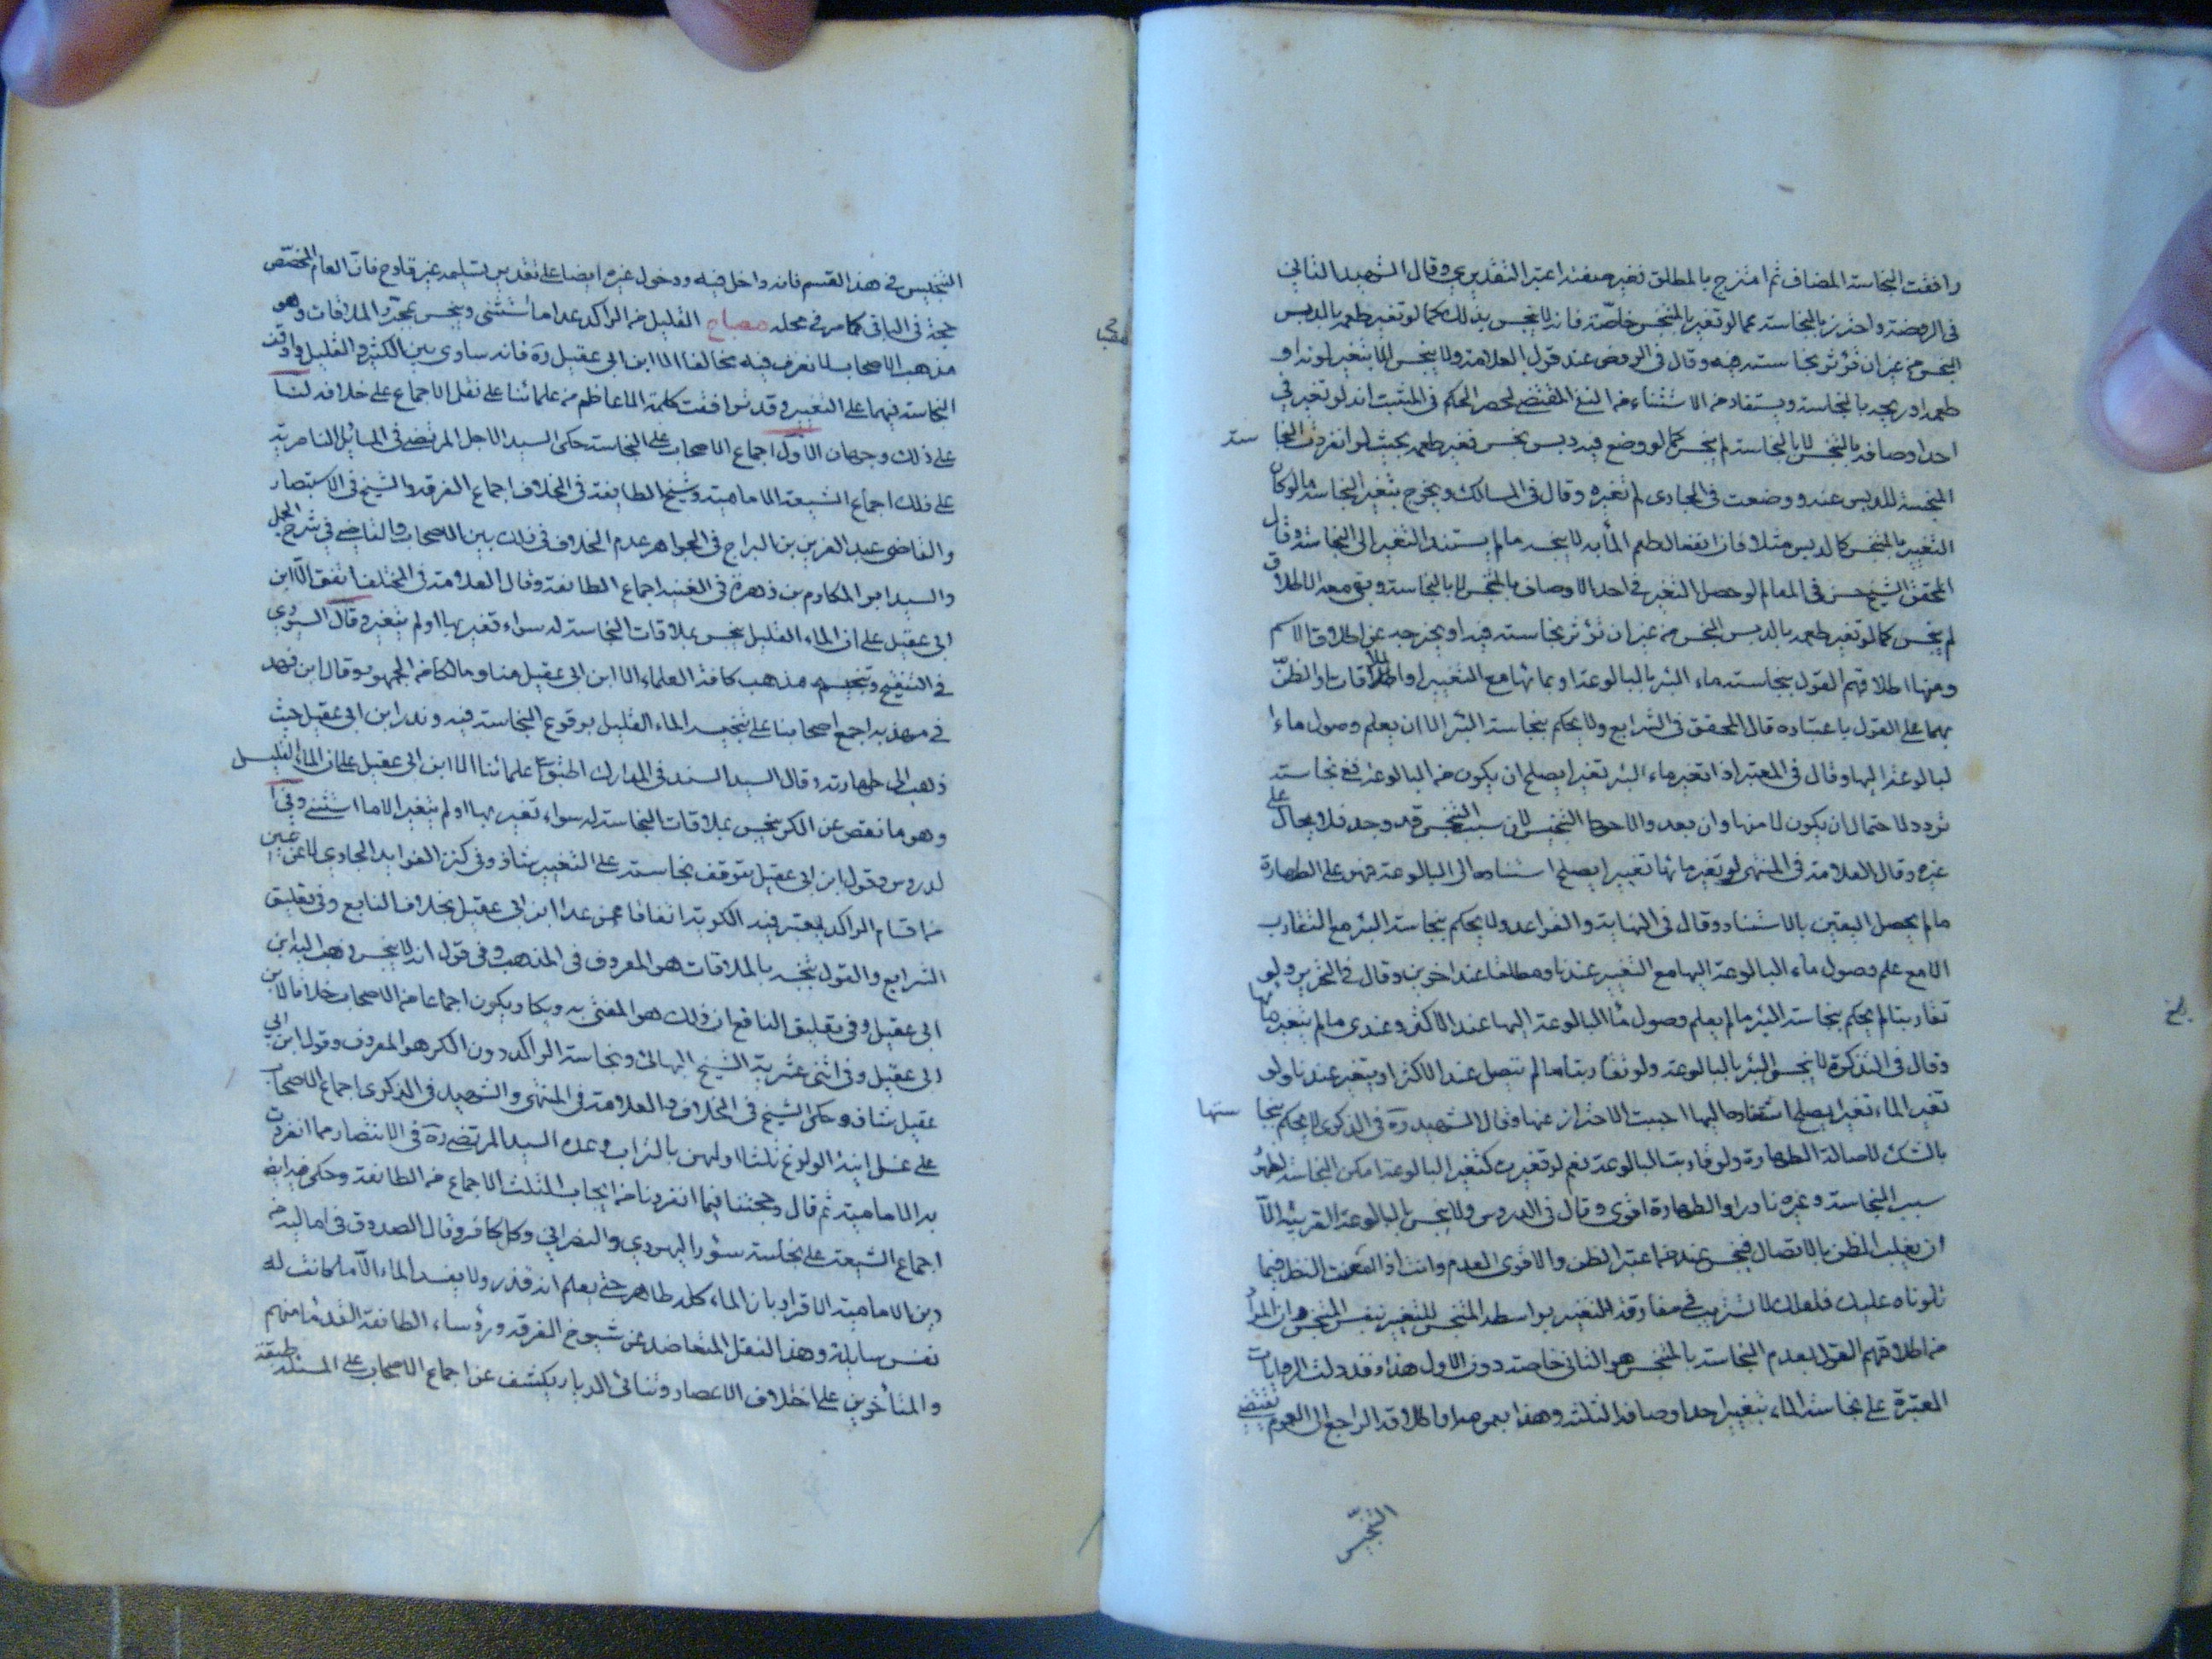 وافقت النجاسة المضاف ثم امتزج بالمطلق فغير صفته اعتبر التقديري وقال الشهيد الثاني
في الروضة واحترز بالنجاسة عما لو تغير بالمتنجس خاصة فانه لا ينجس بذلك كما لو تغير طعمه بالدبس
النجس من غير ان تؤثر نجاسته فيه وقال في الروض عند قول العلامة ولا ينجس الا بتغير لونه او
طعمه او ريحه بالنجاسة ويستفاد من الاستثناء من النفي المقتضي لحصر الحكم في المثبت انه لو تغير في
احد اوصافه بالمتنجس لا بالنجاسة لم ينجس كما لو وضع فيه دبس نجس فغير طعمه بحيث لو انفردت النجا سة
المنجسة للدبس عنه ووضعت في الجاري لم تغيره وقال في المسالك ويخرج بتغير النجاسة ما لو كان
التغيير بالمتنجس كالدبس مثلا فان انفعال طعم الماء به لا ينجسه ما لم يستند التغير الى النجاسة وقال
المحقق الشيخ حسن في المعالم لو حصل التغير في احد الاوصاف بالمتنجس لا بالنجاسة وبقي معه الاطلاق
لم ينجس كما لو تغير طعمه بالدبس النجس من غير ان تؤثر نجاسته فيه او يخرجه عن اطلاق الاسم
ومنها اطلاقهم القول بنجاسة ماء البئر بالبالوعة او بمائها مع التغيير او الملاقات او الظن
بهما على القول باعتباره قال المحقق في الشرايع ولا يحكم بنجاسة البئر الا ان يعلم وصول ماء ا
لبالوعة اليها وقال في المعتبر اذا تغير ماء البئر تغيرا يصلح ان يكون من البالوعة ففي نجاسته
تردد لاحتمال ان يكون لا منها وان بعد والاحوط التنجيس لان سبب التنجس قد وجد فلا يحال على
غيره وقال العلامة في المنتهى لو تغير مائها تغييرا يصلح استناده الى البالوعة فهو على الطهارة
ما لم يحصل اليقين بالاستناد وقال في النهاية والقواعد ولا يحكم بنجاسة البئر مع التقارب
الا مع علم وصول ماء البالوعة اليها مع التغيير عندنا ومطلقا عند اخرين وقال في التحرير ولو
تقاربتا لم يحكم بنجاسة البئر ما لم يعلم وصول ماء البالوعة اليها عند الاكثر وعندي ما لم يتغير مائها
وقال في التذكرة لا ينجس البئر بالبالوعة ولو تقاربتا ما لم تتصل عند الاكثر او يتغير عندنا ولو
تغير الماء تغيرا يصلح استناده اليها احببت الاحتراز عنها وقال الشهيد ره في الذكرى لا يحكم بنجا ستها
بالشك لاصالة الطهارة ولو قاربت البالوعة نعم لو تغيرت كتغير البالوعة امكن النجاسة لظهور
سبب النجاسة وغيره نادر او الطهارة اقوى وقال في الدروس ولا ينجس بالبالوعة القريبة الا
ان يغلب الظن بالاتصال فينجس عند من اعتبر الظن والاقوى العدم وانت اذا امعنت النظر فيما
تلوناه عليك فلعلك لا تستريب في مفارقة التغيير بواسطة المتنجس للتغيير بنفس المتنجس وان المراد
من اطلاقهم القول بعدم النجاسة بالمتنجس هو الثاني خاصة دون الاول هذا وقد دلت الروايات
المعتبرة على نجاسة الماء بتغيير احد اوصافه الثلثة وهذا بعمومه او اطلاقه الراجع الى العموم يقتضي
التنجيس
التنجيس في هذا القسم فانه داخل فيه ودخول غيره ايضا على تقدير تسليمه غير قادح فان العام المخصص
حجة في الباقي كما مر في محله مصباح القليل من الراكد عدا ما استثني ينجس بمجرد الملاقات وهو
مذهب الاصحاب لا نعرف فيه مخالفا الا ابن ابي عقيل ره فانه ساوى بين الكثير والقليل واوقف
النجاسة فيهما على التغيير وقد توافقت كلمة الاعاظم من علمائنا على نقل الاجماع على خلافه لنا
على ذلك وجهان الاول اجماع الاصحاب على النجاسة حكى السيد الاجل المرتضى في المسائل الناصرية
على ذلك اجماع الشيعة الامامية وشيخ الطايفة في الخلاف اجماع الفرقة والشيخ في الاستبصار
والقاضي عبد العزيز بن البراج في الجواهر عدم الخلاف في ذلك بين الاصحاب والقاضي في شرح الجمل
والسيد ابو المكارم بن زهرة في الغنية اجماع الطائفة وقال العلامة في المختلف اتفق الا ابن
ابي عقيل على ان الماء القليل ينجس بملاقات النجاسة له سواء تغير بها او لم يتغير وقال السيوري
في التنقيح وتنجيسه مذهب كافة العلماء الا ابن ابي عقيل منا ومالكا من الجمهور وقال ابن فهد
في مهذبه اجمع اصحابنا على تنجيس الماء القليل بوقوع النجاسة فيه وندر ابن ابي عقيل حيث
ذهب الى طهارته وقال السيد السند في المدارك اطبق علمائنا الا ابن ابي عقيل على ان الماء القليل
وهو ما نقص عن الكر ينجس بملاقات النجاسة له سواء تغير بها او لم يتغير الا ما استثنى وفي ا
لدروس وقول ابن ابي عقيل بتوقف نجاسته على التغيير شاذ وفي كنز الفوايد الجاري لا عن عين
من اقسام الراكد يعتبر فيه الكرية اتفاقا ممن عدا ابن ابي عقيل بخلاف النابع وفي تعليق
الشرايع والقول بنجسه بالملاقات هو المعروف في المذهب وفي قول انه لا ينجس ذهب اليه ابن
ابي عقيل وفي تعليق النافع ان ذلك هو المفتى به ويكاد يكون اجماعا من الاصحاب خلافا لابن
ابي عقيل وفي اثنى عشرية الشيخ البهائي ونجاسة الراكد دون الكر هو المعروف وقول ابن ابي
عقيل شاذ وحكى الشيخ في الخلاف والعلامة في المنتهى والشهيد في الذكرى اجماع الاصحاب
على غسل انية الولوغ ثلثا اولهن بالتراب وعده السيد المرتضى ره في الانتصار مما انفردت
به الامامية ثم قال وحجتنا فيما انفردنا من ايجاب الثلث الاجماع من الطائفة وحكى فيه ايضا
اجماع الشيعة على نجاسة سؤر اليهودي والنصراني وكل كافر وقال الصدوق في اماليه من
دين الامامية الاقرار بان الماء كله طاهر حتى يعلم انه قذر ولا يفسد الماء الا ما كانت له
نفس سايلة وهذا النقل المتعاضد عن شيوخ الفرقة ورؤساء الطائفة القدماء منهم
والمتأخرين على اختلاف الاعصار وتنائي الديار يكشف عن اجماع الاصحاب على المسئلة طبقة